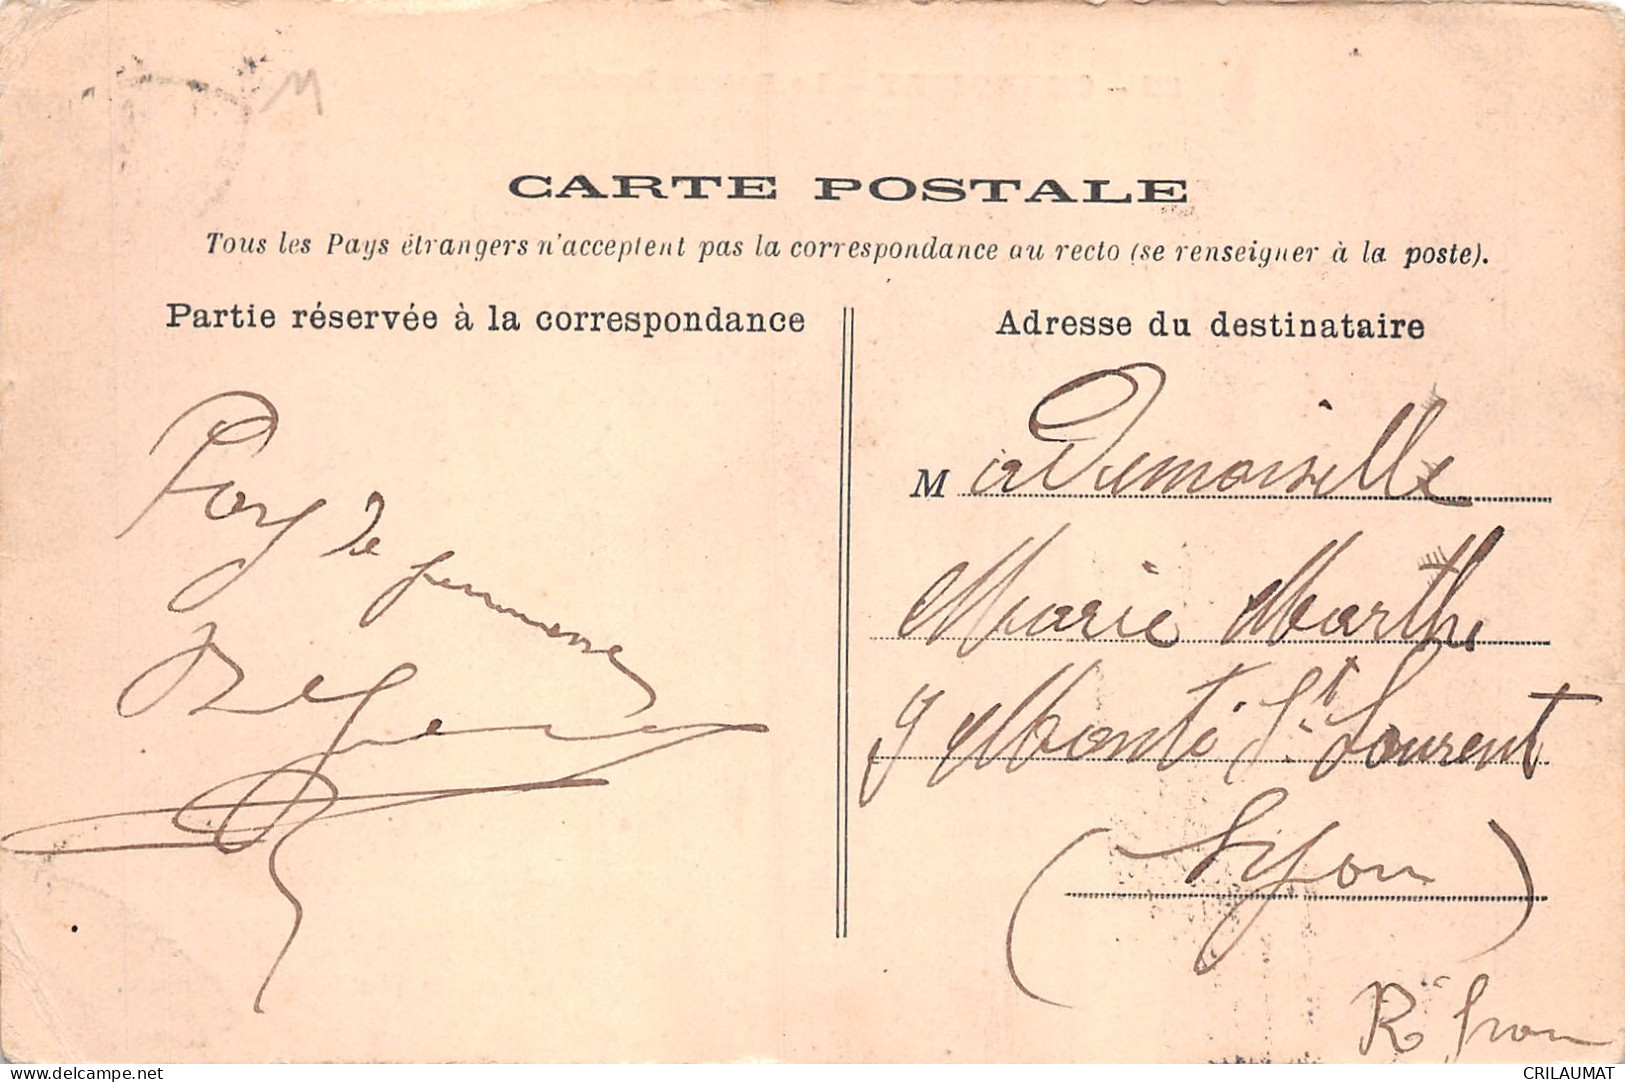 M
CARTE POSTALE
Tous les Pays étrangers n'acceptent pas la correspondance au recto (se renseigner à la poste).
Partie réservée à la correspondance
de
Adresse du destinataire
Mademoiselle
Marie Marthe
9 Monté St. Laurent
(Lyon)
delcampe.net
CRILAUMAT